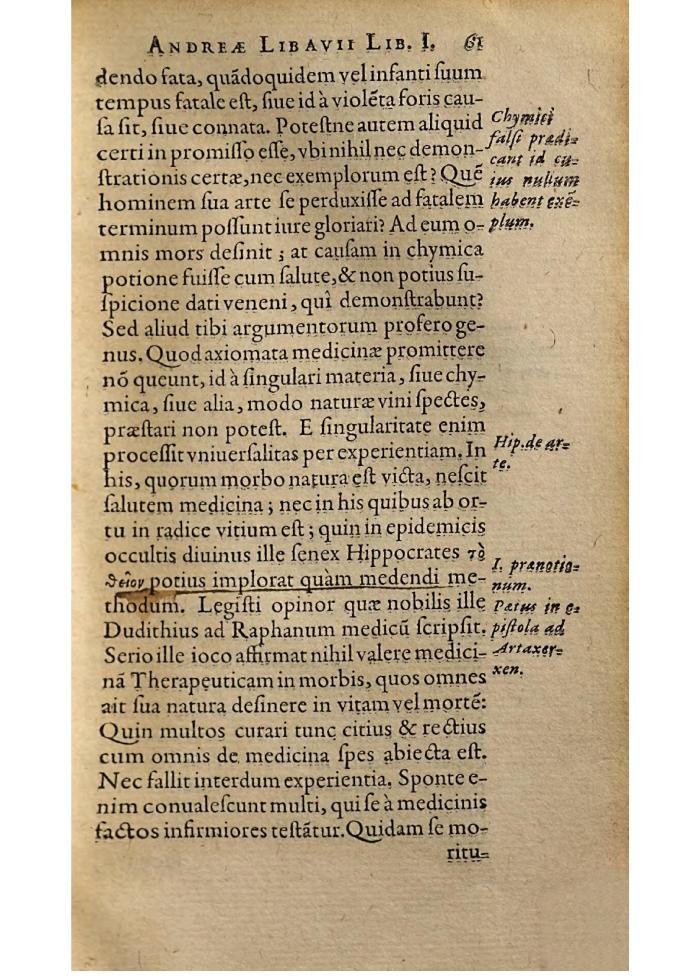 ANDREÆ LIBAVII LIB. I. 61
dendo fata, quãdoquidem vel infanti ſuum
tempus fatale eſt, ſiue id à violẽta foris cau-
ſa ſit, ſiue connata. Poteſtne autem aliquid
certi in promiſſo eſſe, vbi nihil nec demon-
ſtrationis certæ, nec exemplorum eſt? Quẽ
hominem ſua arte ſe perduxiſſe ad fatalem
terminum poſſunt iure gloriari? Ad eum o-
mnis mors deſinit; at cauſam in chymica
potione fuiſſe cum ſalute, & non potius ſu-
ſpicione dati veneni, quì demonſtrabunt?
Sed aliud tibi argumentorum profero ge-
nus. Quod axiomata medicinæ promittere
nõ queunt, id à ſingulari materia, ſiue chy-
mica, ſiue alia, modo naturæ vini ſpectes,
præſtari non poteſt. E ſingularitate enim
proceſſit vniuerſalitas per experientiam. In
his, quorum morbo natura eſt victa, neſcit
ſalutem medicina; nec in his quibus ab or-
tu in radice vitium eſt; quin in epidemicis
occultis diuinus ille ſenex Hippocrates τὸ
θεῖον potius implorat quàm medendi me-
thodum. Legiſti opinor quæ nobilis ille
Dudithius ad Raphanum medicũ ſcripſit.
Serio ille ioco affirmat nihil valere medici-
nã Therapeuticam in morbis, quos omnes
ait ſua natura deſinere in vitam vel mortẽ:
Quin multos curari tunc citius & rectius
cum omnis de medicina ſpes abiecta eſt.
Nec fallit interdum experientia. Sponte e-
nim conualeſcunt multi, qui ſe à medicinis
factos infirmiores teſtãtur. Quidam ſe mo-
ritu-
Chymici
falſi prædi-
cant id cu-
ius nullum
habent exẽ-
plum.
Hip. de ar-
te.
I. prænotio-
num.
Pætus in e-
piſtola ad
Artaxer-
xen.